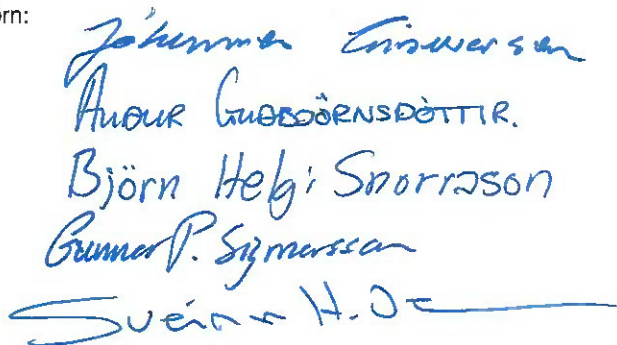 örn:
Jóhannes
AUÐUR GUÐBJÖRNSDÓTTIR.
Björn Helgi Snorrason
Gunnar P. Sigmarsson
Sveinn H.